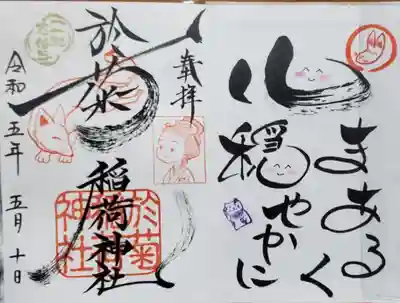 まあるく
心穏やかに
奉拝
於菊稲荷神社
於菊
神社
令和五年 五月 十日